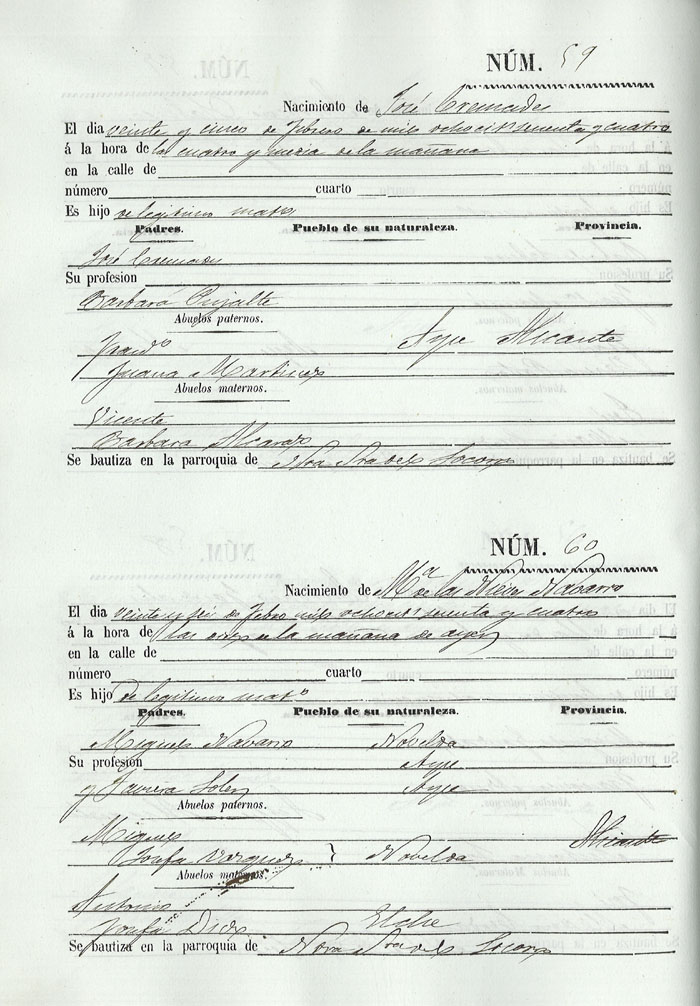 NÚM. 59
Nacimiento de José Cremades
El dia veinte y cinco de Febrero de mil ochocits sesenta y cuatro
á la hora de las cuatro y media de la mañana
en la calle de
número cuarto
Es hijo de legitimo mato
Padres. Pueblo de su naturaleza. Provincia.
José Cremades
Su profesion
Barbara
Abuelos paternos.
Aspe Alicante
Juana Martinez
Abuelos maternos.
Vicente
Barbara Alcaraz
Se bautiza en la parroquia de Ntra Sra del Socorro
NÚM. 60
Nacimiento de Mª de las Nieves Navarro
El dia veinte y seis de Febro mil ochocits sesenta y cuatro
á la hora de las once de la mañana de ayer
en la calle de
número cuarto
Es hijo de legitimo mato
Padres. Pueblo de su naturaleza. Provincia.
Miguel Navarro Novelda
Su profesion Aspe
y Javiera Soler Aspe
Abuelos paternos.
Miguel Alicante
Josefa Vazquez } Novelda
Abuelos maternos.
Antonio
Josefa Diez Elche
Se bautiza en la parroquia de Ntra Sra del Socorro